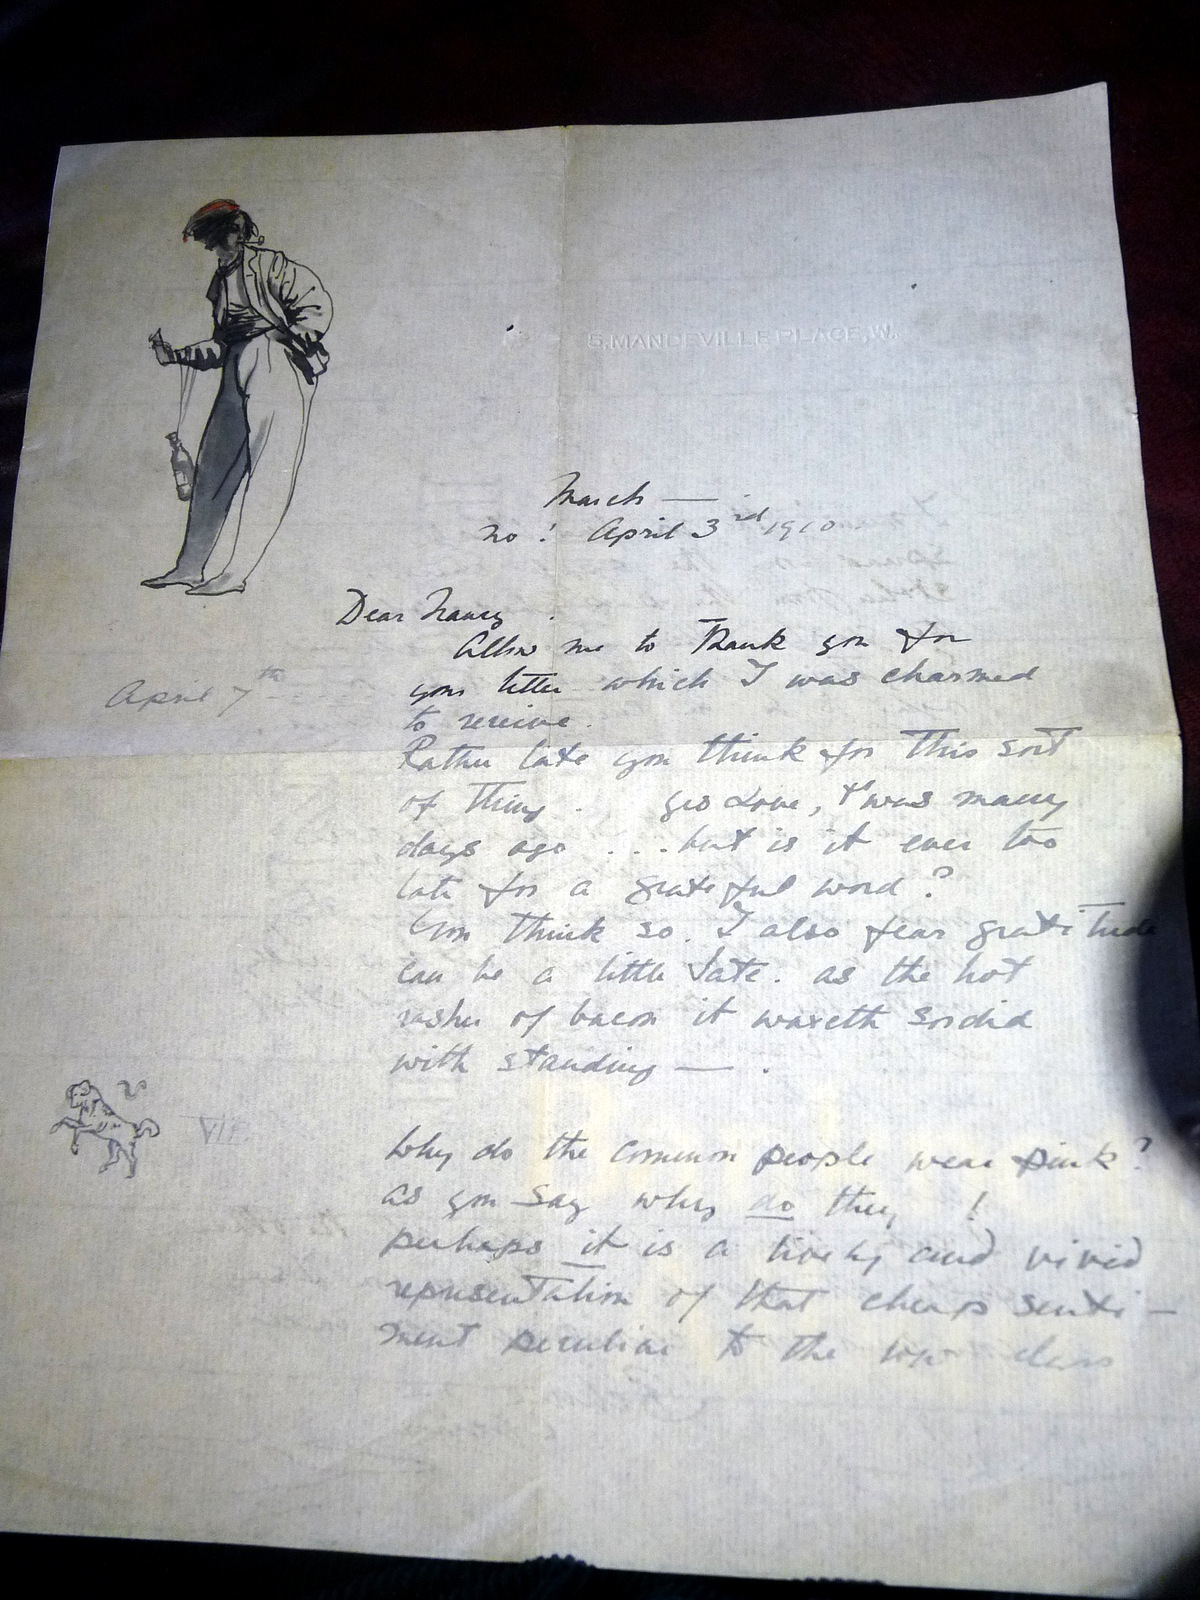 5, MANDEVILLE PLACE, W.
March —
no! April 3rd 1910
Dear Nancy.
Allow me to Thank you for
your letter which I was charmed
to receive.
April 7th
Rather late you think for This sort
of Thing. yes Love, t'was many
days ago ... but is it ever too
late for a grateful word?
You Think so. I also fear gratitude
can be a little late. as the hot
rasher of bacon it waxeth sordid
with standing — .
Why do the common people wear pink?
as you say why do they !
perhaps it is a lively and vivid
representation of that cheap senti-
ment peculiar to the low class